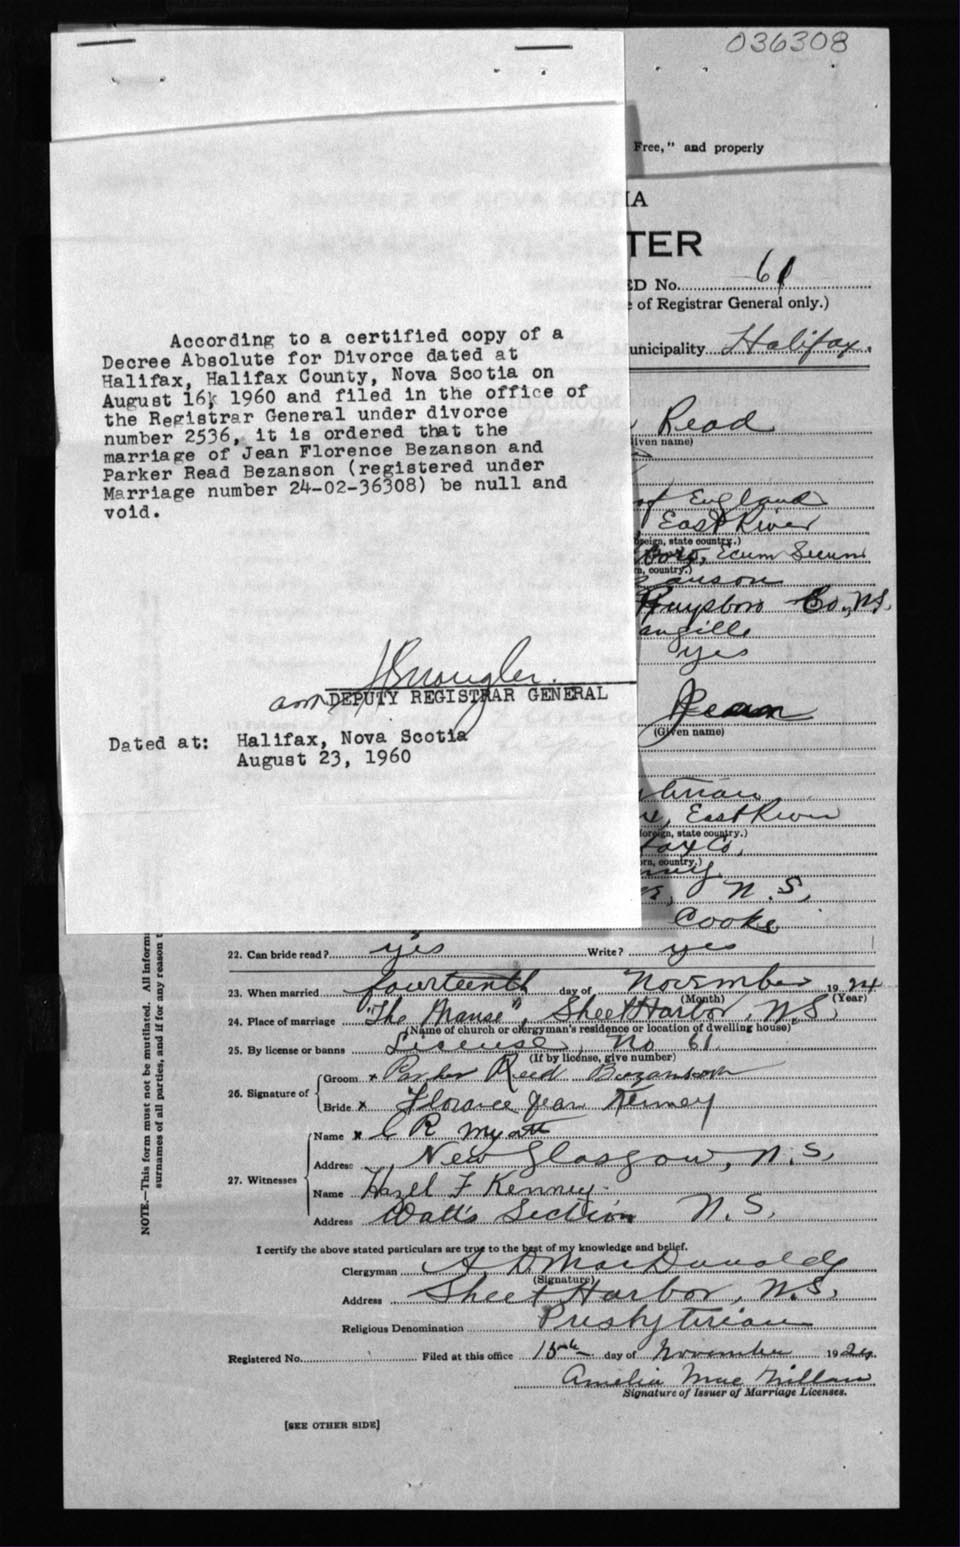 036308
Free," and properly
IA
TER
ED No. 61
of Registrar General only.)
unicipality Halifax.
According to a certified copy of a
Decree Absolute for Divorce dated at
Halifax, Halifax County, Nova Scotia on
August 16, 1960 and filed in the office of
the Registrar General under divorce
number 2536, it is ordered that the
marriage of Jean Florence Bezanson and
Parker Read Bezanson (registered under
Marriage number 24-02-36308) be null and
void.
DEPUTY REGISTRAR GENERAL
Dated at: Halifax, Nova Scotia
August 23, 1960
Read
iven name)
of England
East River
oreign, state country.)
Boro, Ecum Secum
n, country.)
anson
Guysboro Co., N.S.
angille
yes
Jean
(Given name)
terian
East River
foreign, state country.)
fax Co,
rn, country.)
N. S,
Cooke
22. Can bride read? yes Write? yes
23. When married fourteenth day of November 1924
(Month) (Year)
24. Place of marriage "The Manse", Sheet Harbor, N.S,
(Name of church or clergyman's residence or location of dwelling house)
25. By license or banns License, No 61
(If by license, give number)
26. Signature of Groom x Parker Reed Bezanson
Bride x Florance Jean Kenney
27. Witnesses Name x C R Myatt
Address New Glasgow, N.S,
Name Hazel F Kenney
Address Watt's Section N.S,
I certify the above stated particulars are true to the best of my knowledge and belief.
Clergyman A. D. MacDonald
(Signature)
Address Sheet Harbor, N.S,
Religious Denomination Presbyterian
Registered No. Filed at this office 15th day of November 1924
Amelia MacMillan
Signature of Issuer of Marriage Licenses.
[SEE OTHER SIDE]
NOTE.—This form must not be mutilated. All inform
surnames of all parties, and if for any reason t